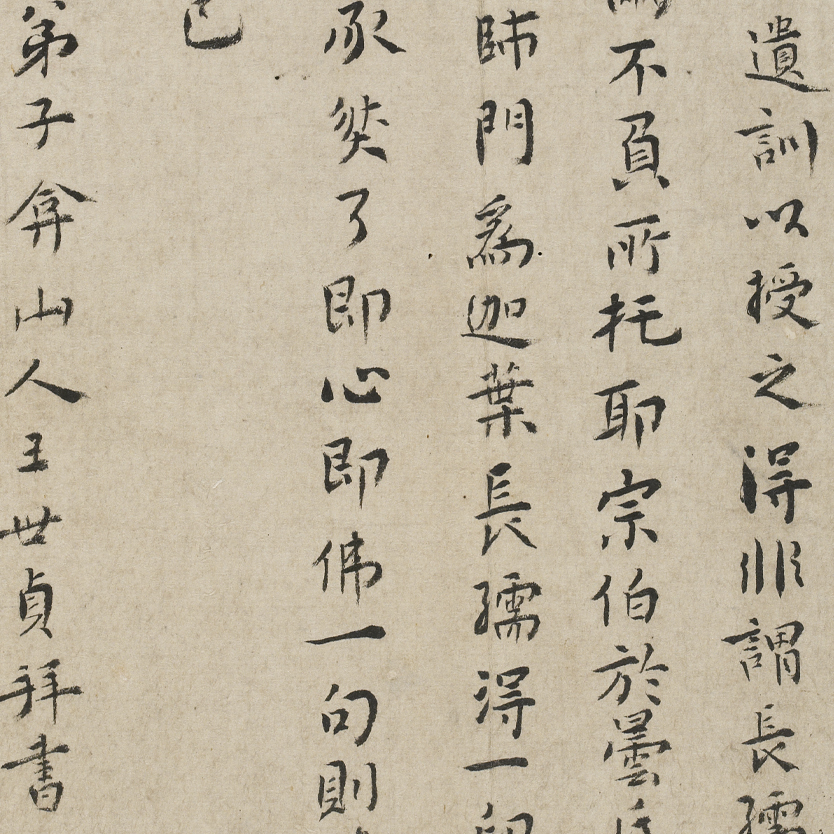 遺訓以授之得非謂長孺
不負所托耶宗伯於曇
師門為迦葉長孺得一
承了即心即佛一句則
已
弟子弇山人王世貞拜書